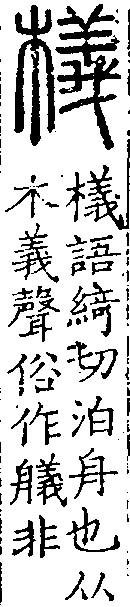 檥
檥語綺切泊舟也从
木義聲俗作艤非